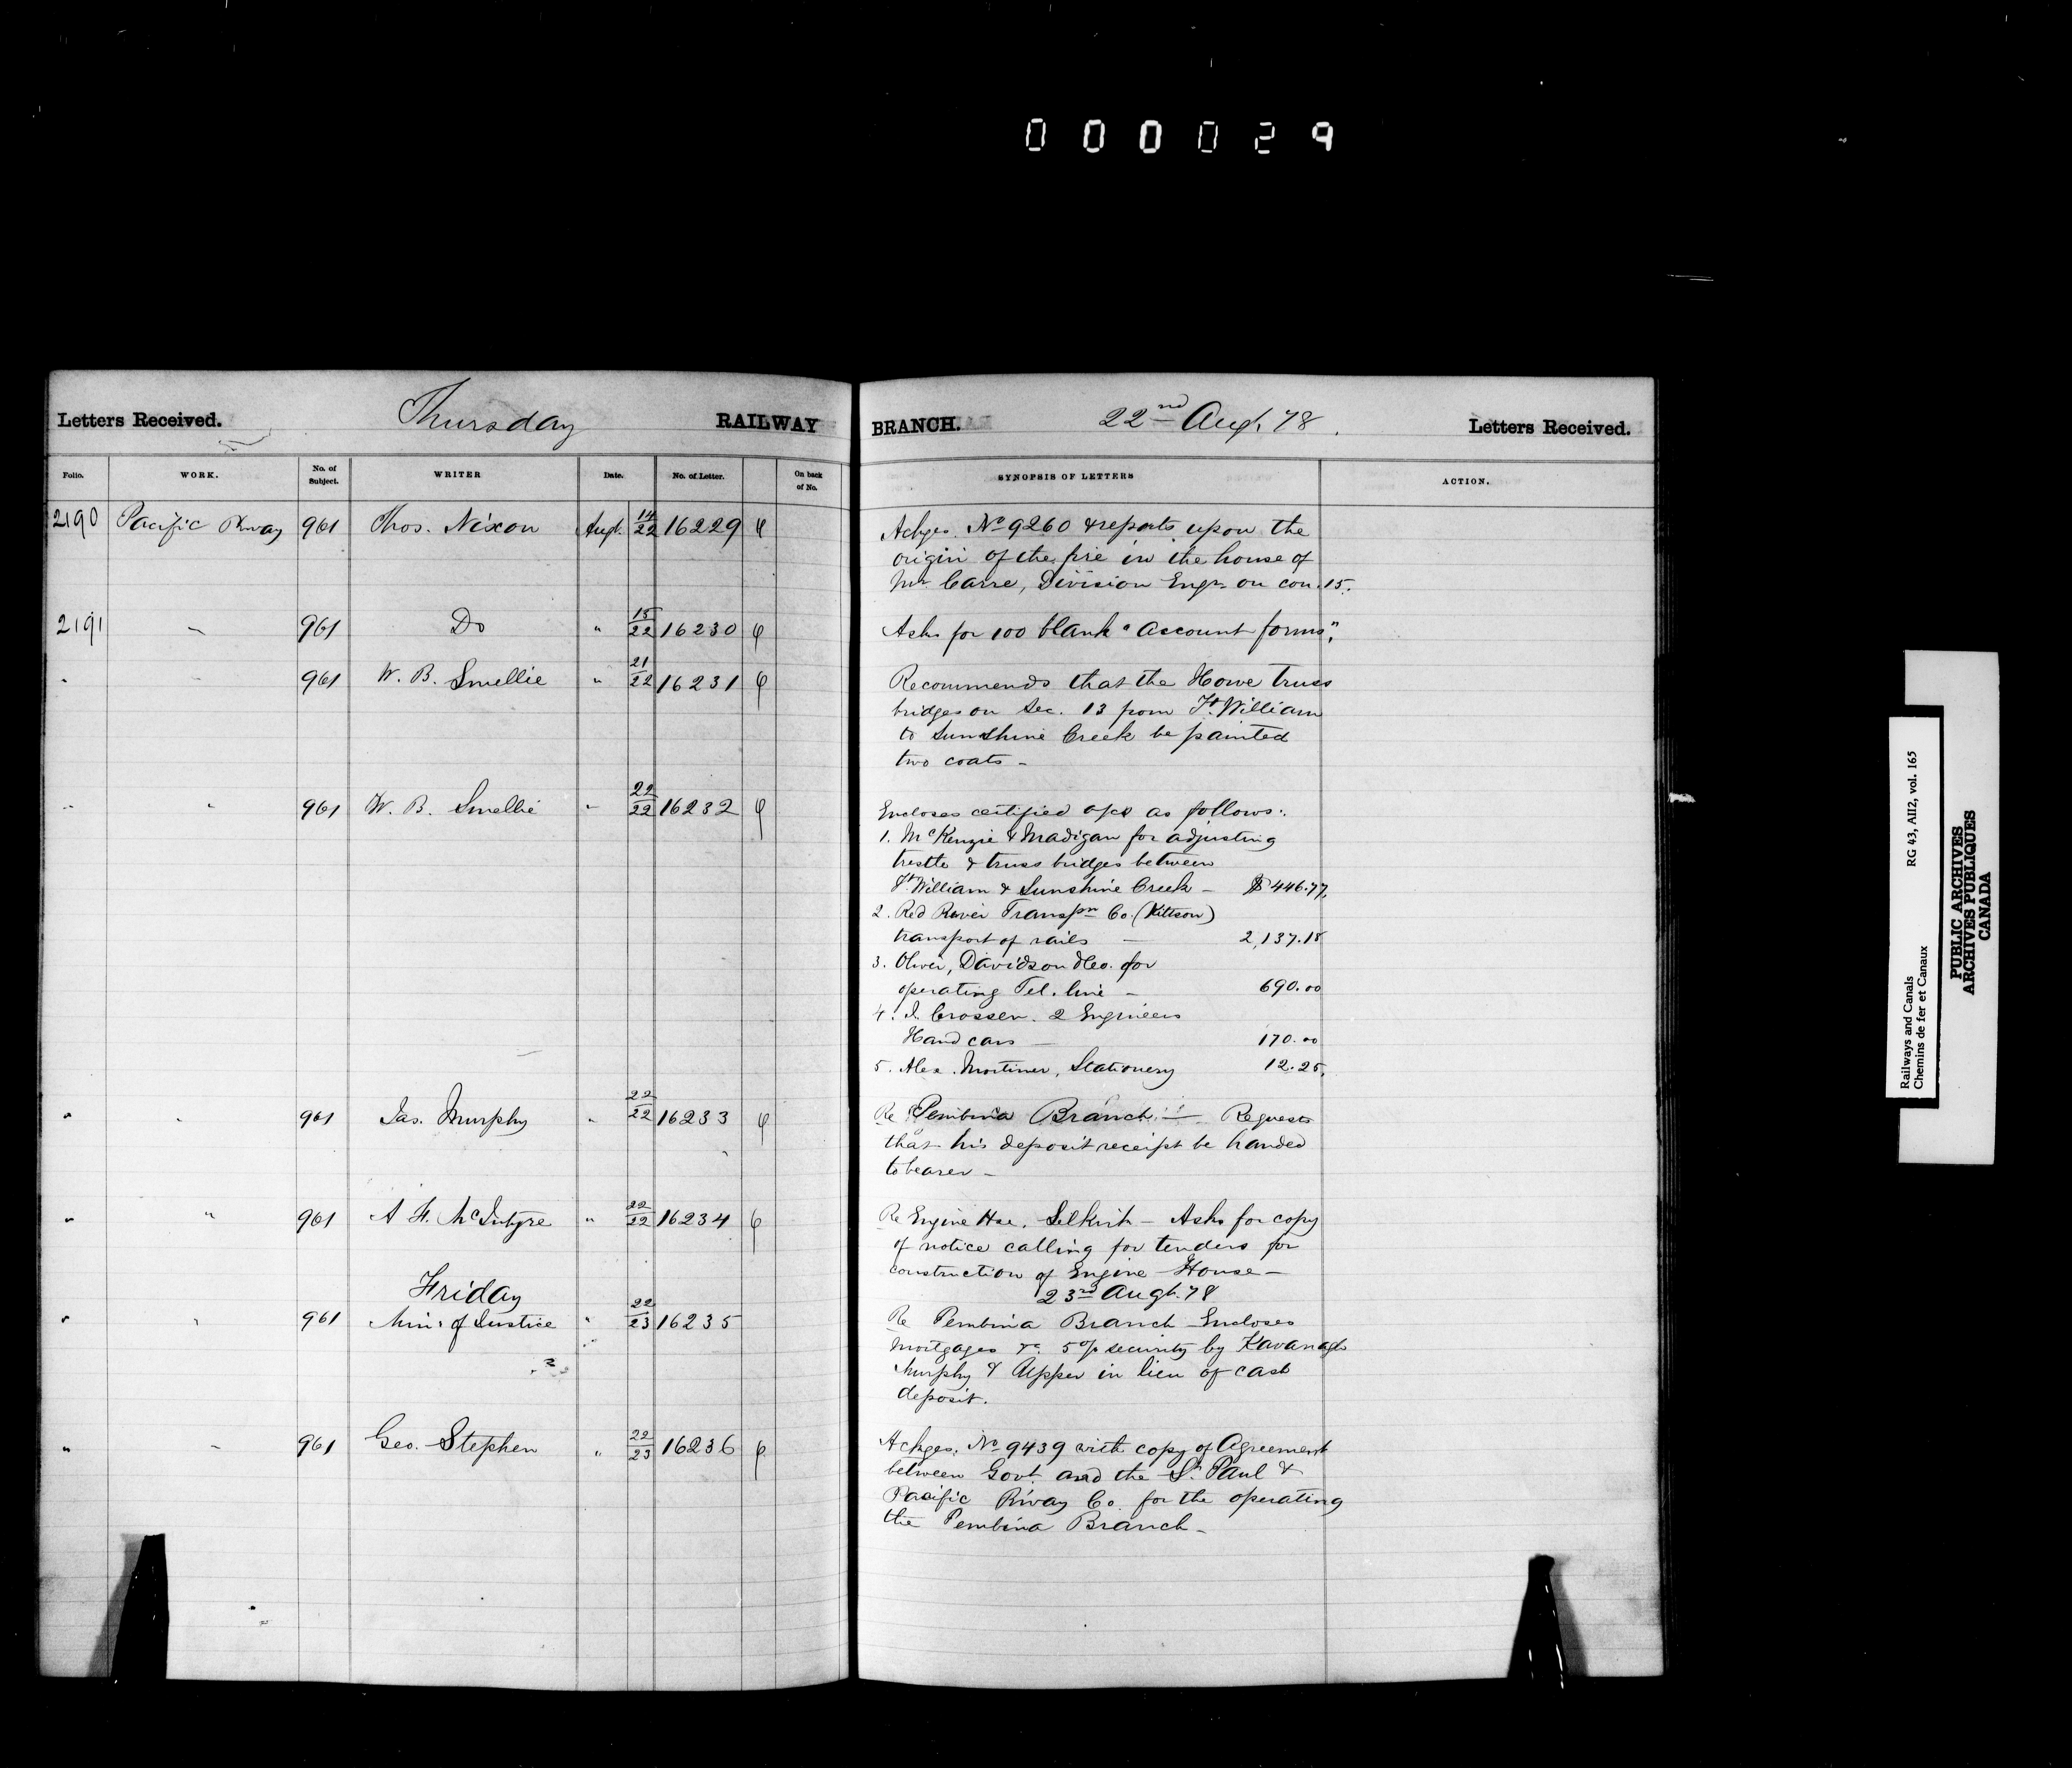 000029
Letters Received. Thursday RAILWAY BRANCH. 22nd Augt. 78. Letters Received.
Folio. WORK. No. of Subject. WRITER Date. No. of Letter. On back of No. SYNOPSIS OF LETTERS ACTION.
2190 Pacific Rway 961 Thos. Nixon Augt. 14/22 16229 Ackges. No 9260 & reports upon the
origin of the fire in the house of
Mr. Carre, Division Engr. on con. 15.
2191 " 961 Do " 15/22 16230 Asks for 100 blank "account forms".
" " 961 W. B. Smellie " 21/22 16231 Recommends that the Howe truss
bridges on Sec. 13 from Ft. William
to Sunshine Creek be painted
two coats -
" " 961 W. B. Smellie " 22/22 16232 Encloses certified a/cs as follows:
1. McKenzie & Madigan for adjusting
trestle & truss bridges between
Ft. William & Sunshine Creek - $446.77.
2. Red River Transpn Co. (Kittson)
transport of rails - 2,137.18
3. Oliver, Davidson & Co. for
operating Tel. line - 690.00
4. J. Crossen. 2 Engineers
Hand cars - 170.00
5. Alex. Mortimer, Stationery 12.25.
" " 961 Jas. Murphy " 22/22 16233 Re Pembina Branch - Requests
that his deposit receipt be handed
to bearer -
" " 961 A F. McIntyre " 22/22 16234 Re Engine Hse. Selkirk - Asks for copy
of notice calling for tenders for
construction of Engine House -
Friday 23rd Augt. 78
" " 961 Minr. of Justice " 22/23 16235 Re Pembina Branch Encloses
mortgages &c. 5% security by Kavanagh
Murphy & Upper in lieu of cash
deposit.
" " 961 Geo. Stephen " 22/23 16236 Ackges. No 9439 with copy of Agreement
between Govt. and the St. Paul &
Pacific Rway Co. for the operating
the Pembina Branch -
Railways and Canals RG 43, AII2, vol. 165
Chemins de fer et Canaux
PUBLIC ARCHIVES
ARCHIVES PUBLIQUES
CANADA